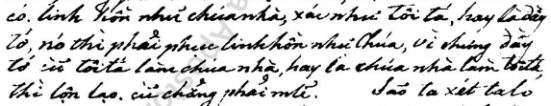 có. linh hồn như chúa nhà, xác như tôi tá, hay là đầy
tớ, nó thì phải phục linh hồn như Chúa, vì chưng đầy
tớ cứ tôi tá làm chúa nhà, hay là chúa nhà làm tôi tá,
thì lộn lạo. cứ chẳng phải mlẽ. Sao ta xét ta lo